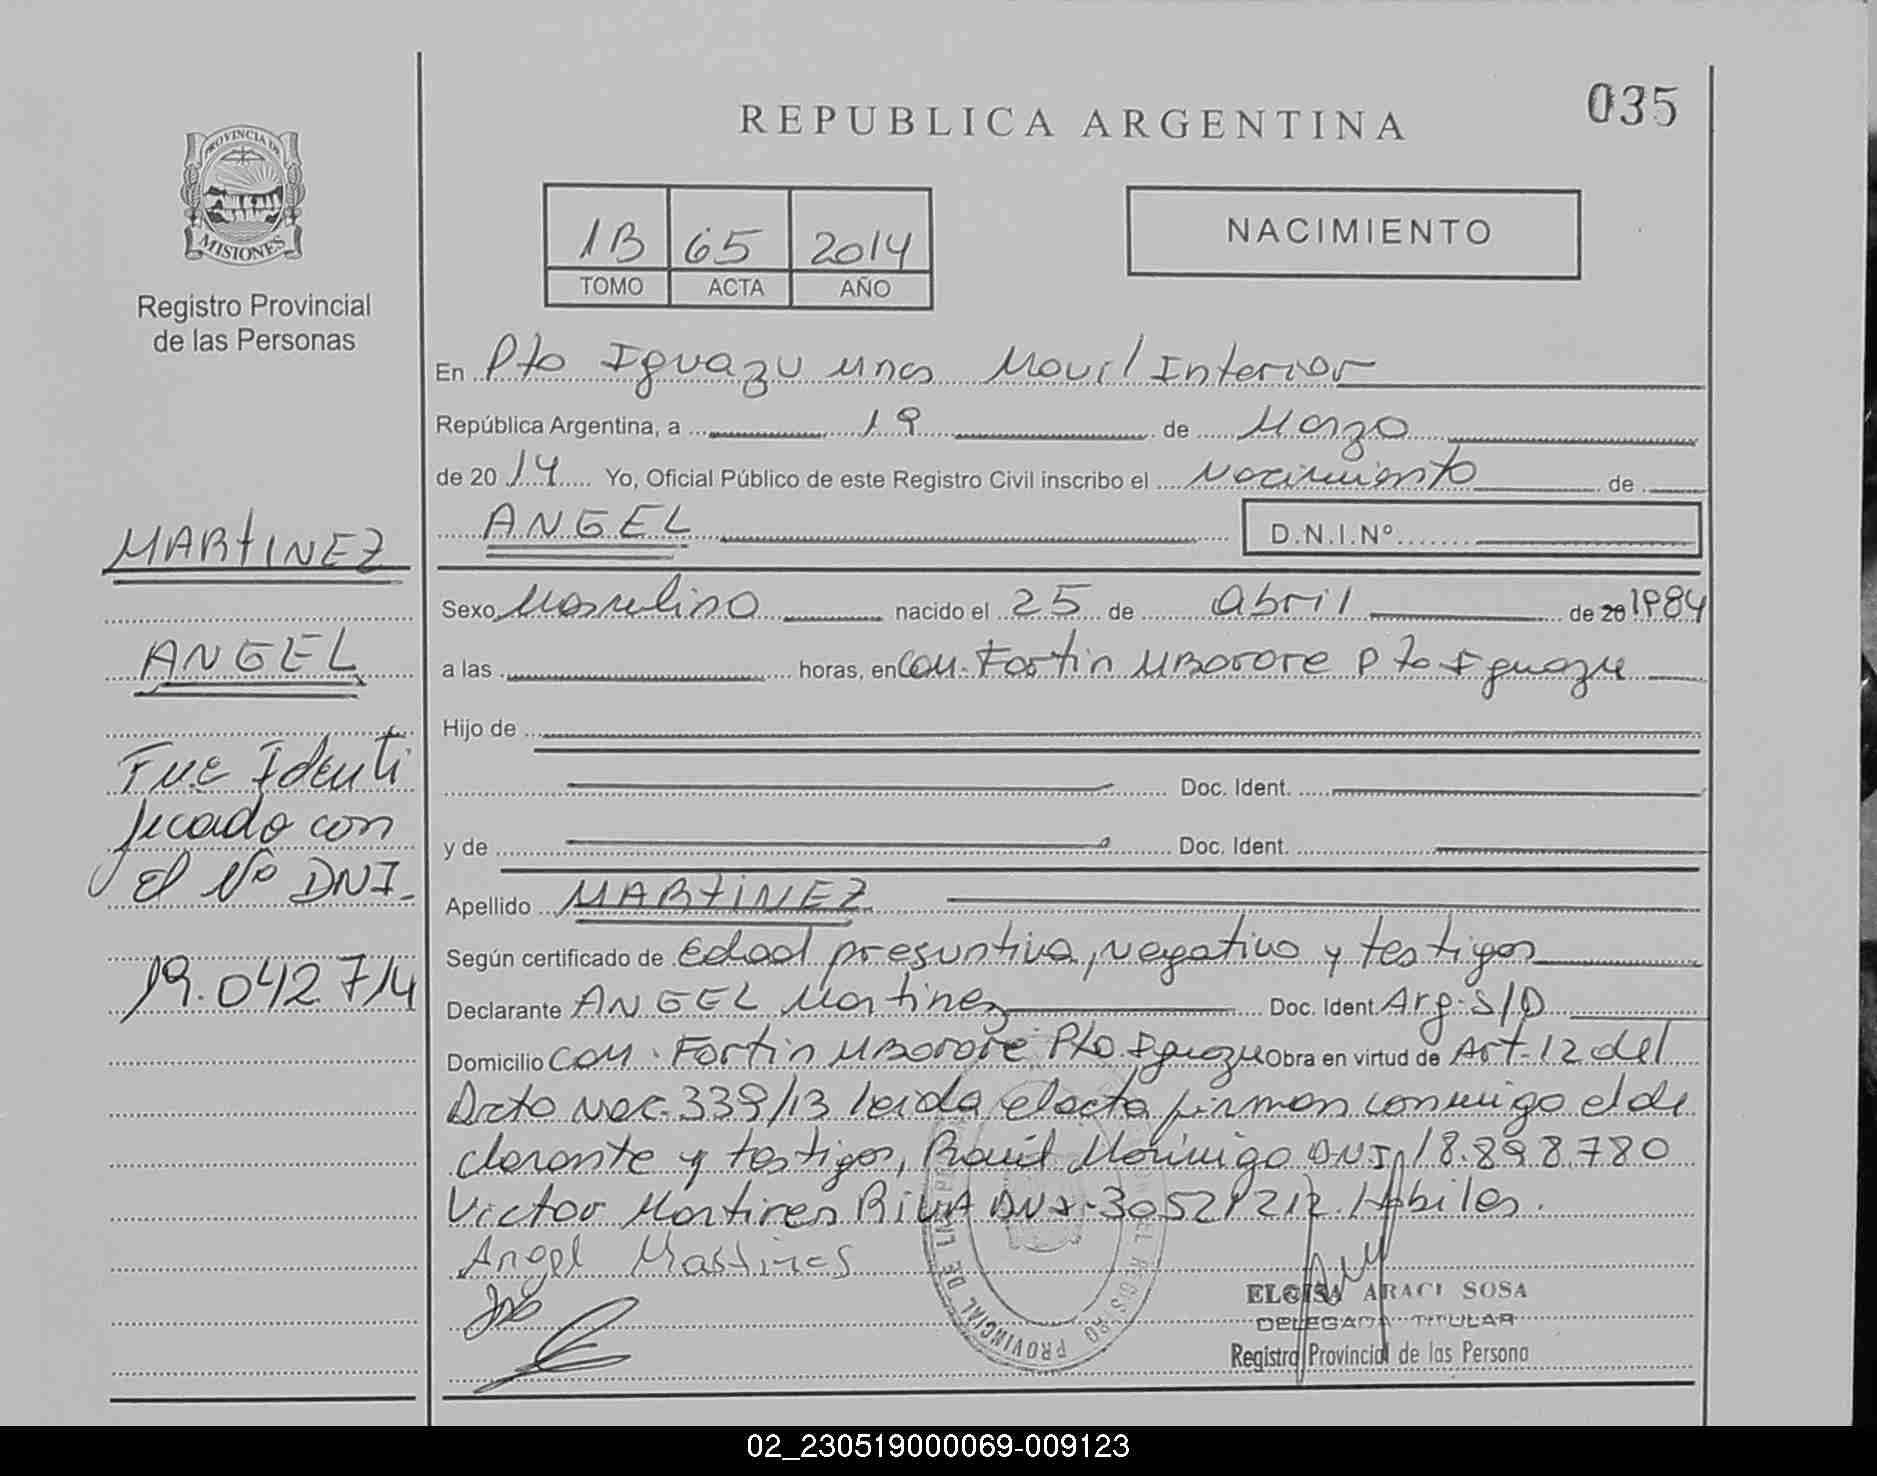 035
REPUBLICA ARGENTINA
PROVINCIA DE
MISIONES
Registro Provincial
de las Personas
1B 65 2014
TOMO ACTA AÑO
NACIMIENTO
En Pto Iguazu Mnes Movil Interior
República Argentina, a 19 de Marzo
de 2014 Yo, Oficial Público de este Registro Civil inscribo el Nacimiento de
ANGEL D.N.I.Nº
Sexo Masculino nacido el 25 de abril de 20 1984
a las horas, en Com. Fortin MBorore Pto Iguazu
Hijo de
Doc. Ident.
y de Doc. Ident.
Apellido MARTINEZ
Según certificado de Edad presuntiva, Negativo y testigos
Declarante ANGEL Martinez Doc. Ident. Arg. S/D
Domicilio Com. Fortin MBorore Pto. Iguazu Obra en virtud de Art. 12 del
Dcto Nac. 339/13 leida el acta firman conmigo el de
clarante y testigos, Morinigo DNI 18.898.780
Victor Martines DNI 30521212. Habiles.
Angel Martines
ELOISA ARACI SOSA
DELEGADA TITULAR
Registro Provincial de las Persona
MARTINEZ
ANGEL
Fue Identi
ficado con
el Nº DNI.
19.042.714
02_230519000069-009123